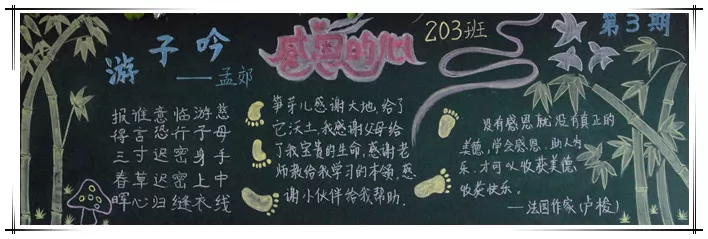 游子吟
——孟郊
慈母手中线
游子身上衣
临行密密缝
意恐迟迟归
谁言寸草心
报得三春晖
感恩的心
203班
第3期
笋芽儿感谢大地,给了
它沃土.我感谢父母给
了我宝贵的生命.感谢老
师教给我学习的本领.感
谢小伙伴给我帮助.
没有感恩就没有真正的
美德,学会感恩、助人为
乐,才可以收获美德、
收获快乐.
——法国作家(卢梭)